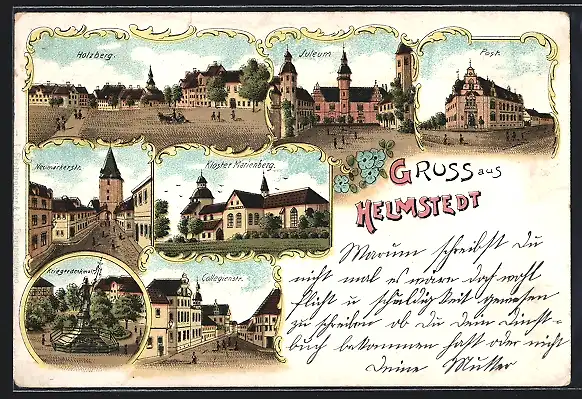 Holzberg.
Juleum
Post.
Neumärkerstr.
Kloster Marienberg.
Gruss aus
Helmstedt
Kriegerdenkmal
Collegienstr.
Warum schreibst Du
nicht mal es wäre doch wohl
Pflicht u schuldigkeit gewesen
zu schreiben ob Du Dein Dienst-
buch bekommen hast oder nicht
Deine Mutter